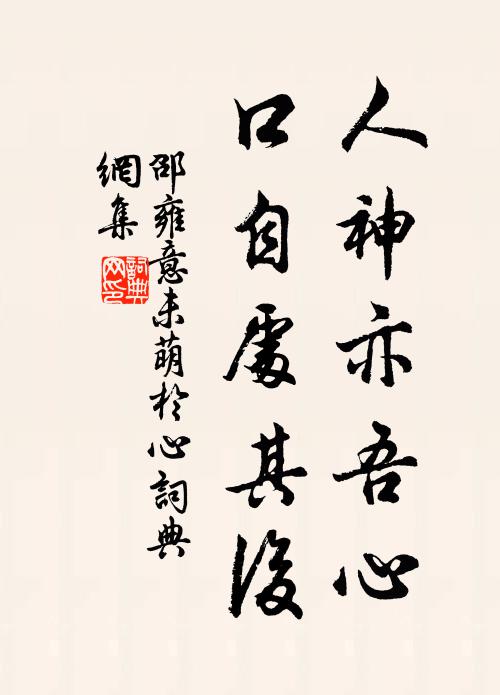 人神亦吾心
口自處其後
邵雍意未萌於心詞典
網集
詞典
网印